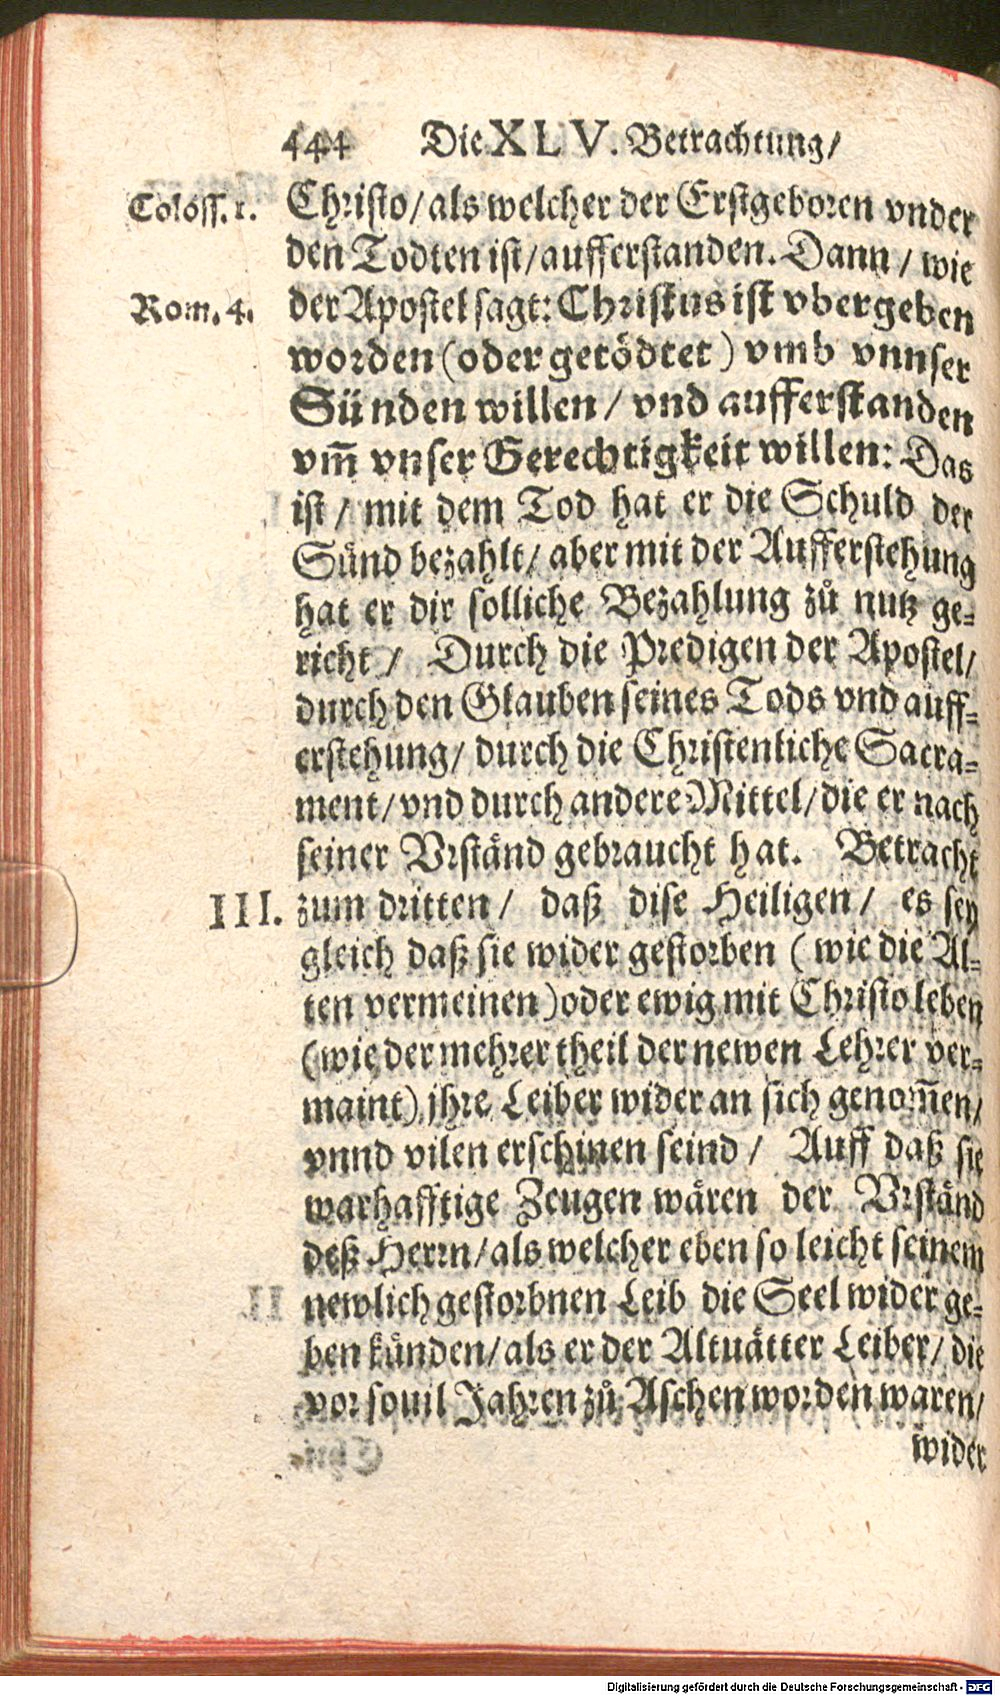 444 Die XLV. Betrachtung/
Coloss. 1. Christo/ als welcher der Erstgeboren vnder
den Todten ist/ aufferstanden. Dann/ wie
Rom. 4. der Apostel sagt: Christus ist vbergeben
worden (oder getödtet) vmb vnnser
Sünden willen/ vnd aufferstanden
vm̃ vnser Gerechtigkeit willen: Das
ist/ mit dem Tod hat er die Schuld der
Sünd bezahlt/ aber mit der Aufferstehung
hat er dir solliche Bezahlung zů nutz ge-
richt/ Durch die Predigen der Apostel/
durch den Glauben seines Tods vnd auff-
erstehung/ durch die Christenliche Sacra-
ment/ vnd durch andere Mittel/ die er nach
seiner Vrständ gebraucht hat. Betracht
III. zum dritten/ daß dise Heiligen/ es sey
gleich daß sie wider gestorben (wie die Al-
ten vermeinen) oder ewig mit Christo leben
(wie der mehrer theil der newen Lehrer ver-
maint) jhre Leiber wider an sich genom̃en/
vnnd vilen erschinen seind/ Auff daß sie
warhafftige Zeugen wären der Vrständ
deß Herrn/ als welcher eben so leicht seinem
newlich gestorbnen Leib die Seel wider ge-
ben künden/ als er der Altuätter Leiber/ die
vor souil Jahren zů Aschen worden waren/
wider
Digitalisierung gefördert durch die Deutsche Forschungsgemeinschaft - DFG